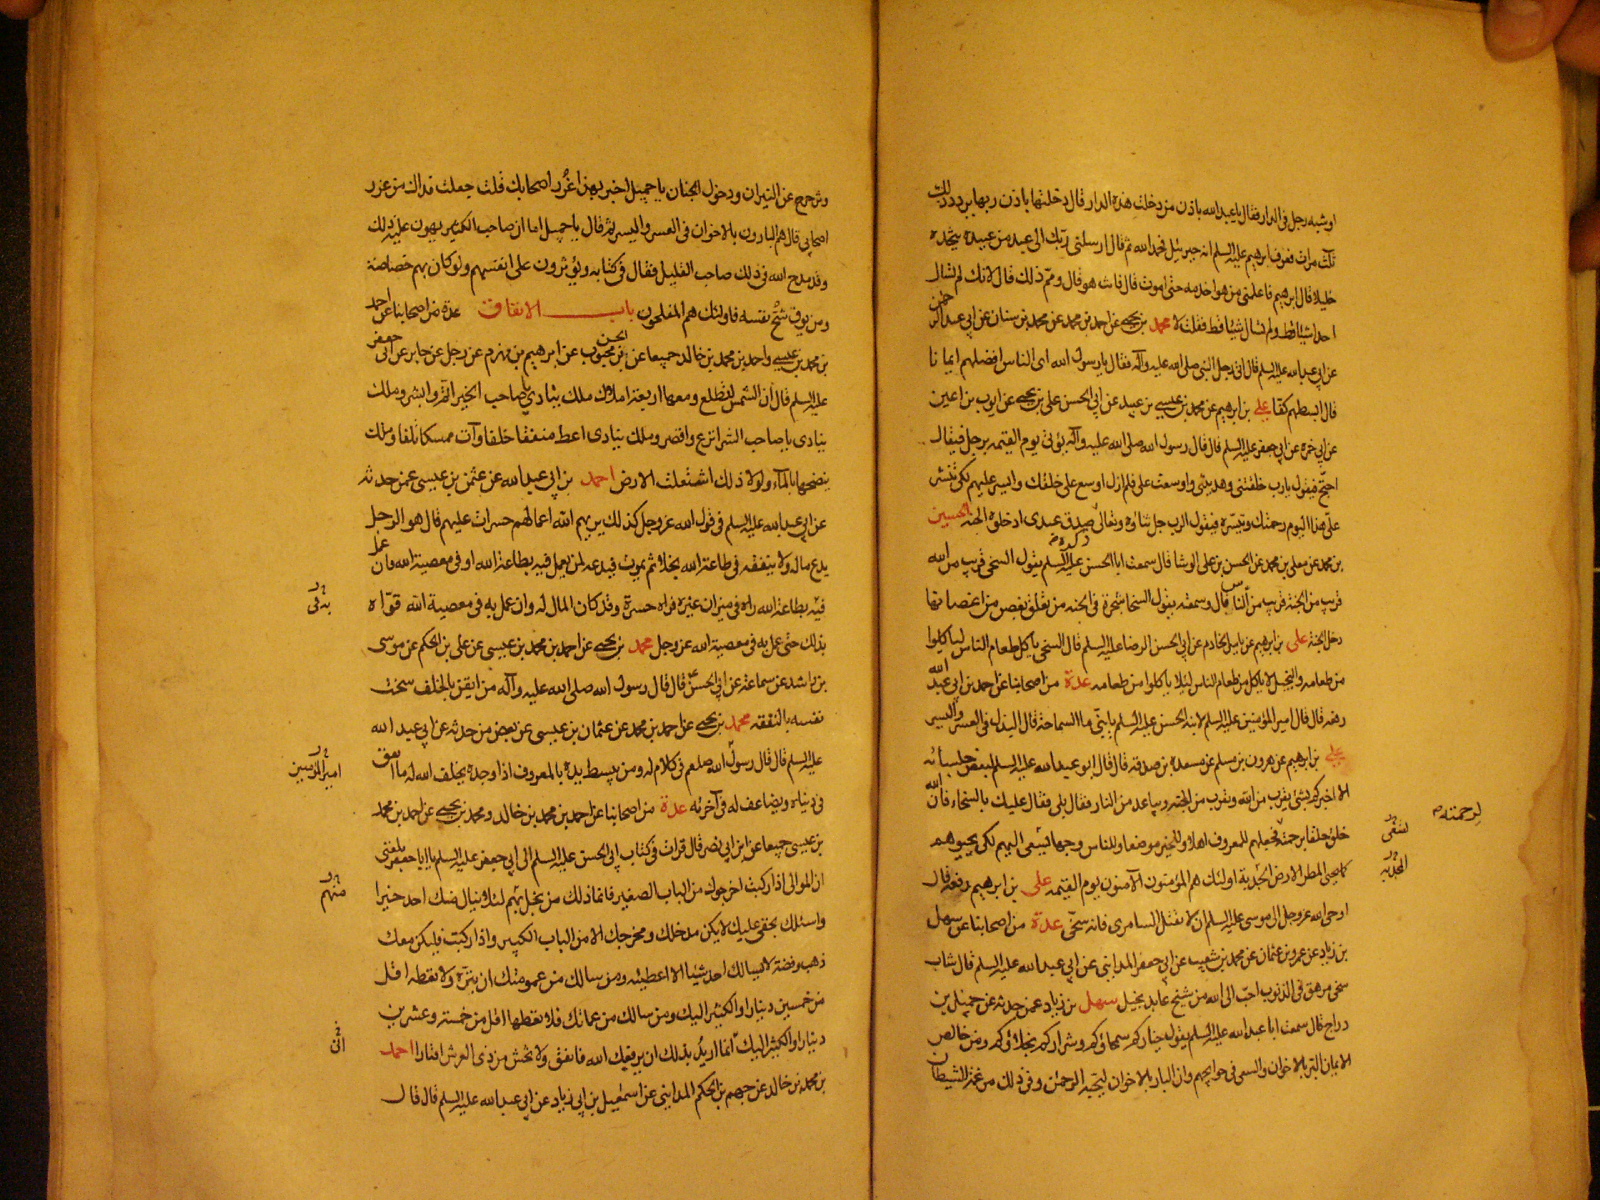 او شبه رجل فى الدار فقال يا عبد الله باذن من دخلت هذه الدار قال دخلتها باذن ربها يردد ذلك
ثلث مرات فعرف ابرهيم عليه السلم انه جبرئيل فحمد الله ثم قال ارسلنى ربك الى عبد من عبيده يتخذه
خليلا قال ابرهيم فاعلمنى من هو اخدمه حتى اموت قال فانت هو قال ومم ذلك قال لانك لم تسال
احدا شيئا قط ولم تسال شيئا قط فقلت لا محمد بن يحيى عن احمد بن محمد عن محمد بن سنان عن ابى عبد الرحمن
عن ابى عبد الله عليه السلم قال اتى رجل النبى صلى الله عليه وآله فقال يا رسول الله اى الناس افضلهم ايمانا
قال ابسطهم كفا على بن ابرهيم عن محمد بن عيسى بن عبيد عن ابى الحسن على بن يحيى عن ايوب بن اعين
عن ابى حمزة عن ابى جعفر عليه السلم قال قال رسول الله صلى الله عليه وآله يؤتى يوم القيمة برجل فيقال
احتج فيقول يا رب خلقتنى وهديتنى واوسعت على فلم ازل اوسع على خلقك وايسر عليهم لكى تنشر
على هذا اليوم رحمتك وتيسره فيقول الرب جل ثناؤه وتعالى ذكره صدق عبدى ادخلوه الجنة الحسين
بن محمد عن معلى بن محمد عن الحسن بن على الوشا قال سمعت ابا الحسن عليه السلم يقول السخى قريب من الله
قريب من الجنة قريب من الناس قال وسمعته يقول السخا شجرة فى الجنة من تعلق بغصن من اغصانها
دخل الجنة على بن ابرهيم عن ياسر الخادم عن ابى الحسن الرضا عليه السلم قال السخى ياكل طعام الناس لياكلوا
من طعامه والبخيل لا ياكل من طعام الناس لئلا ياكلوا من طعامه عدة من اصحابنا عن احمد بن ابى عبد الله
رفعه قال قال امير المؤمنين عليه السلم لابنه الحسن عليه السلم يا بنى ما السماحة قال البذل فى العسر واليسر
على بن ابرهيم عن هرون بن مسلم عن مسعدة بن صدقة قال قال ابو عبد الله عليه السلم لبعض جلسائه
الا اخبرك بشئ يقرب من الله ويقرب من الجنة ويباعد من النار فقال بلى فقال عليك بالسخاء فان الله
خلق خلقا برحمته فجعلهم للمعروف اهلا وللخير موضعا وللناس وجها يسعى اليهم لكى يحيوهم
كما يحيى المطر الارض الجدبة اولئك هم المؤمنون الآمنون يوم القيمة على بن ابرهيم رفعه قال
اوحى الله عز وجل الى موسى عليه السلم ان لا تقتل السامرى فانه سخى عدة من اصحابنا عن سهل
بن زياد عن عمرو بن عثمان عن محمد بن شعيب عن ابى جعفر المداينى عن ابى عبد الله عليه السلم قال شاب
سخى مرهق فى الذنوب احب الى الله من شيخ عابد بخيل سهل بن زياد عمن حدثه عن جميل بن
دراج قال سمعت ابا عبد الله عليه السلم يقول خياركم سمحاؤكم وشراركم بخلاؤكم ومن خالص
الايمان البر بالاخوان والسعى فى حوايجهم وان البار بالاخوان ليحبه الرحمن وفى ذلك مرغمة الشيطان
لرحمته
المجدبة
وتزحزح عن النيران ودخول الجنان يا جميل اخبر بهذا غرر اصحابك قلت جعلت فداك من غرر
اصحابى قال هم البارون بالاخوان فى العسر واليسر ثم قال يا جميل اما ان صاحب الكثير يهون عليه ذلك
وقد مدح الله فى ذلك صاحب القليل فقال فى كتابه ويؤثرون على انفسهم ولو كان بهم خصاصة
ومن يوق شح نفسه فاولئك هم المفلحون باب الانفاق عدة من اصحابنا عن احمد
بن محمد بن عيسى واحمد بن محمد بن خالد جميعا عن الحسن بن محبوب عن ابرهيم بن مهزم عن رجل عن جابر عن ابى جعفر
عليه السلم قال ان الشمس لتطلع ومعها اربعة املاك ملك ينادى يا صاحب الخير اتم وابشر وملك
ينادى يا صاحب الشر انزع واقصر وملك ينادى اعط منفقا خلفا وآت ممسكا تلفا وملك
ينضحها بالماء ولولا ذلك اشتعلت الارض احمد بن ابى عبد الله عن عثمن بن عيسى عمن حدثه
عن ابى عبد الله عليه السلم فى قول الله عز وجل كذلك يريهم الله اعمالهم حسرات عليهم قال هو الرجل
يدع ماله لا ينفقه فى طاعة الله بخلا ثم يموت فيدعه لمن يعمل فيه بطاعة الله او فى معصية الله فان عمل
فيه بطاعة الله راه فى ميزان غيره فراه حسرة وقد كان المال له وان عمل به فى معصية الله قواه
بذلك حتى عمل به فى معصية الله عز وجل محمد بن يحيى عن احمد بن محمد بن عيسى عن على بن الحكم عن موسى
بن راشد عن سماعة عن ابى الحسن ع قال قال رسول الله صلى الله عليه وآله من ايقن بالخلف سخت
نفسه بالنفقة محمد بن يحيى عن احمد بن محمد عن عثمان بن عيسى عن بعض من حدثه عن ابى عبد الله
عليه السلم قال قال رسول الله صلعم فى كلام له ومن يبسط يده بالمعروف اذا وجده يخلف الله له ما انفق
فى دنياه ويضاعف له فى آخرته عدة من اصحابنا عن احمد بن محمد بن خالد ومحمد بن يحيى عن احمد بن محمد
بن عيسى جميعا عن ابن ابى نصر قال قرات فى كتاب ابى الحسن عليه السلم الى ابى جعفر عليه السلم يا ابا جعفر بلغنى
ان الموالى اذا ركبت اخرجوك من الباب الصغير فانما ذلك من بخل بهم لئلا ينال منك احد خيرا
واسئلك بحقى عليك لا يكن مدخلك ومخرجك الا من الباب الكبير واذا ركبت فليكن معك
ذهب وفضة لا يسالك احد شيئا الا اعطيته ومن سالك من عمومتك ان تبره فلا تعطه اقل
من خمسين دينارا والكثير اليك ومن سالك من عماتك فلا تعطها اقل من خمسة وعشرين
دينارا والكثير اليك انما اريد بذلك ان يرفعك الله فانفق ولا تخش من ذى العرش اقتارا احمد
بن محمد بن خالد عن جهم بن الحكم المداينى عن اسمعيل بن ابى زياد عن ابى عبد الله عليه السلم قال قال
به فى
امير المؤمنين
منهم
انى